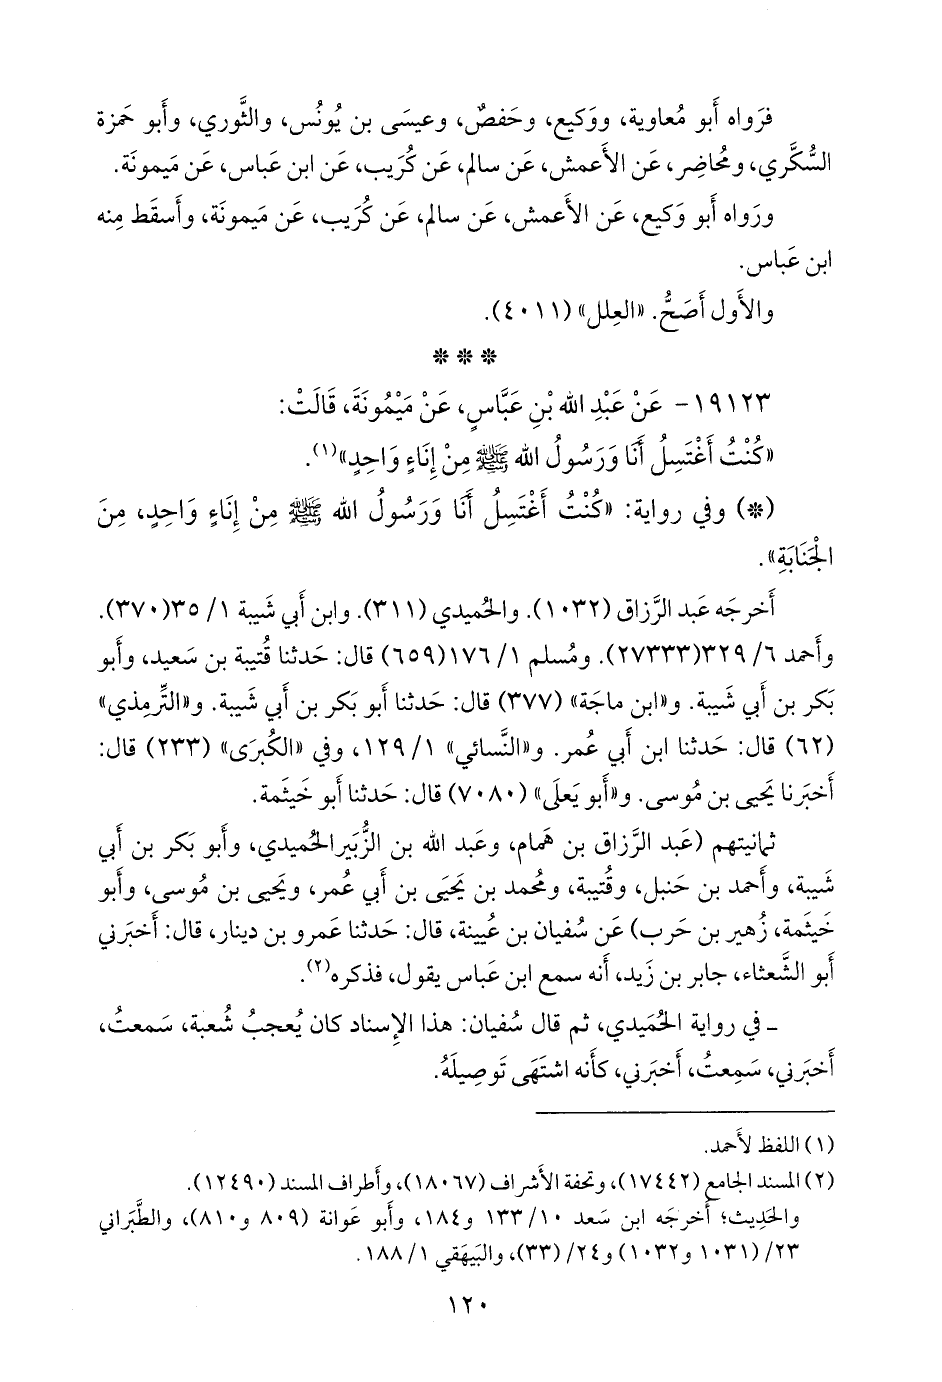 فرَواه أَبو مُعاوية، ووَكيع، وحَفصٌ، وعيسَى بن يُونُس، والثَّوري، وأَبو حَمزة
السُّكَّري، ومُحاضِر، عَن الأَعمش، عَن سالم، عَن كُرَيب، عَن ابن عَباس، عَن مَيمونَة.
ورَواه أَبو وَكيع، عَن الأَعمش، عَن سالم، عَن كُرَيب، عَن مَيمونَة، وأَسقَط مِنه
ابن عَباس.
والأَول أَصَحُّ. «العِلل» (٤٠١١).
* * *
١٩١٢٣- عَنْ عَبْدِ الله بْنِ عَبَّاسٍ، عَنْ مَيْمُونَةَ، قَالَتْ:
«كُنْتُ أَغْتَسِلُ أَنَا وَرَسُولُ الله ﷺ مِنْ إِنَاءٍ وَاحِدٍ»(١).
(*) وفي رواية: «كُنْتُ أَغْتَسِلُ أَنَا وَرَسُولُ الله ﷺ مِنْ إِنَاءٍ وَاحِدٍ، مِنَ
الْجَنَابَةِ».
أَخرجَه عَبد الرَّزاق (١٠٣٢). والحُميدي (٣١١). وابن أَبي شَيبة ١/ ٣٥(٣٧٠).
وأَحمد ٦/ ٣٢٩(٢٧٣٣٣). ومُسلم ١/ ١٧٦(٦٥٩) قال: حَدثنا قُتيبة بن سَعيد، وأَبو
بَكر بن أَبي شَيبة. و«ابن ماجَة» (٣٧٧) قال: حَدثنا أَبو بَكر بن أَبي شَيبة. و«التِّرمِذي»
(٦٢) قال: حَدثنا ابن أَبي عُمر. و«النَّسائي» ١/ ١٢٩، وفي «الكُبرَى» (٢٣٣) قال:
أَخبَرنا يَحيى بن مُوسى. و«أَبو يَعلَى» (٧٠٨٠) قال: حَدثنا أَبو خَيثَمة.
ثمانيتهم (عَبد الرَّزاق بن هَمام، وعَبد الله بن الزُّبَير الحُميدي، وأَبو بَكر بن أَبي
شَيبة، وأَحمد بن حَنبل، وقُتيبة، ومُحمد بن يَحيَى بن أَبي عُمر، ويَحيى بن مُوسى، وأَبو
خَيثَمة، زُهير بن حَرب) عَن سُفيان بن عُيينة، قال: حَدثنا عَمرو بن دينار، قال: أَخبَرني
أَبو الشَّعثاء، جابر بن زَيد، أَنه سمع ابن عَباس يقول، فذكره(٢).
ـ في رواية الحُمَيدي، ثم قال سُفيان: هذا الإِسناد كان يُعجبُ شُعبة، سَمعتُ،
أَخبَرني، سَمِعتُ، أَخبَرني، كأَنه اشتَهَى تَوصِيلَهُ.
(١) اللفظ لأَحمد.
(٢) المسند الجامع (١٧٤٤٢)، وتحفة الأَشراف (١٨٠٦٧)، وأَطراف المسند (١٢٤٩٠).
والحَدِيث؛ أَخرجَه ابن سَعد ١٠/ ١٣٣ و١٨٤، وأَبو عَوانة (٨٠٩ و٨١٠)، والطَّبَراني
٢٣/ (١٠٣١ و١٠٣٢) و٢٤/ (٣٣)، والبَيهَقي ١/ ١٨٨.
١٢٠